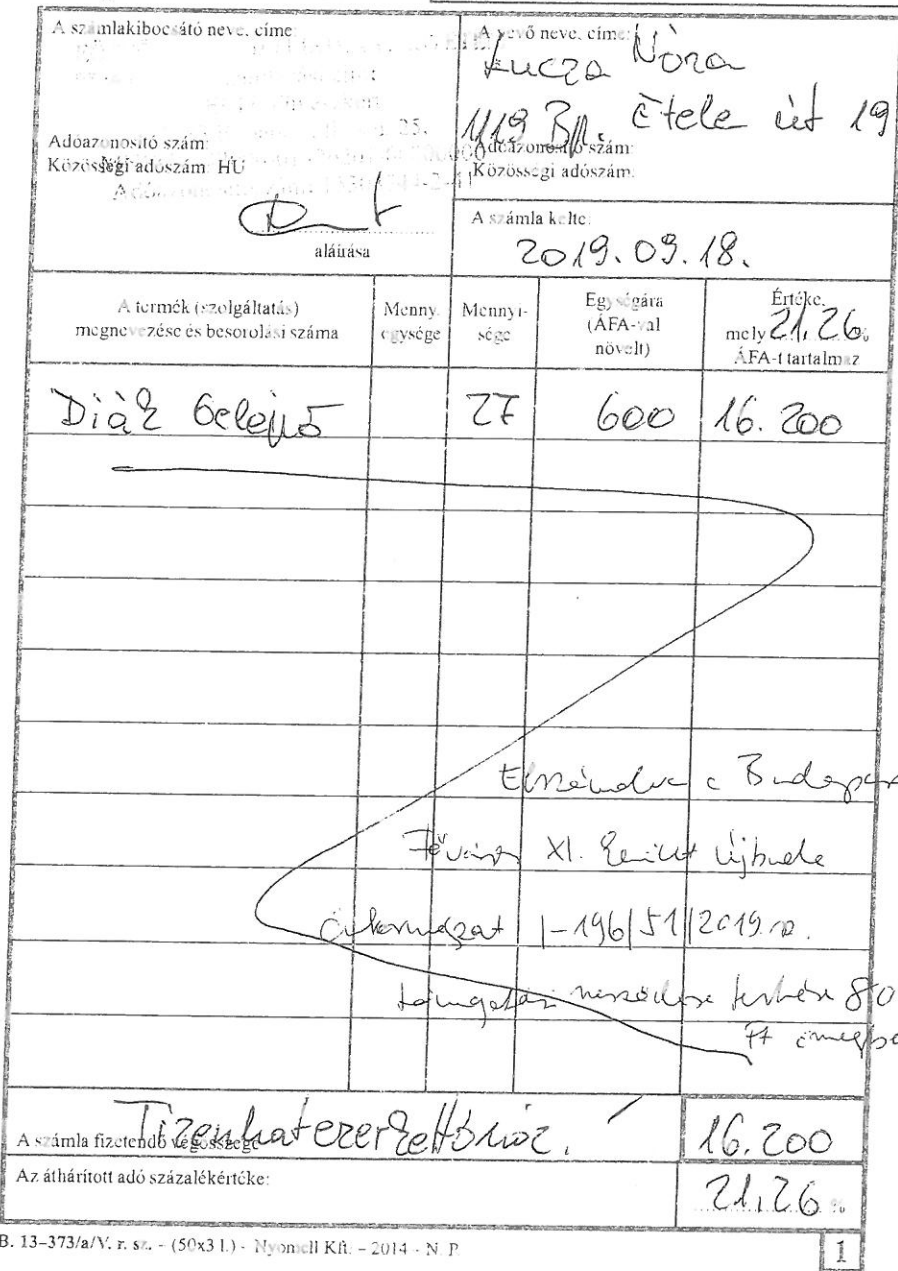 A számlakibocsátó neve, címe:
25.
Adóazonosító szám:
Közösségi adószám: HU
aláírása
A vevő neve, címe:
Lucza Nóra
1119 Bp. Etele út 19
Adóazonosító szám:
Közösségi adószám:
A számla kelte:
2019.09.18.
A termék (szolgáltatás) megnevezése és besorolási száma
Menny. egysége
Mennyi-
sége
Egységára
(ÁFA-val
növelt)
Értéke,
mely 21,26 %
ÁFA-t tartalmaz
Diák belépő 27 600 16.200
Elszámolva a Budapest
Főváros XI. Kerület Újbuda
Önkormányzat I-196/51/2019.
támogatási szerződése terhére 80
Ft
A számla fizetendő végösszege Tizenhatezerkettőszáz. 16.200
Az áthárított adó százalékértéke: 21,26 %
B. 13-373/a/V. r. sz. - (50x3 l.) - Nyomell Kft. - 2014 - N. P.
1